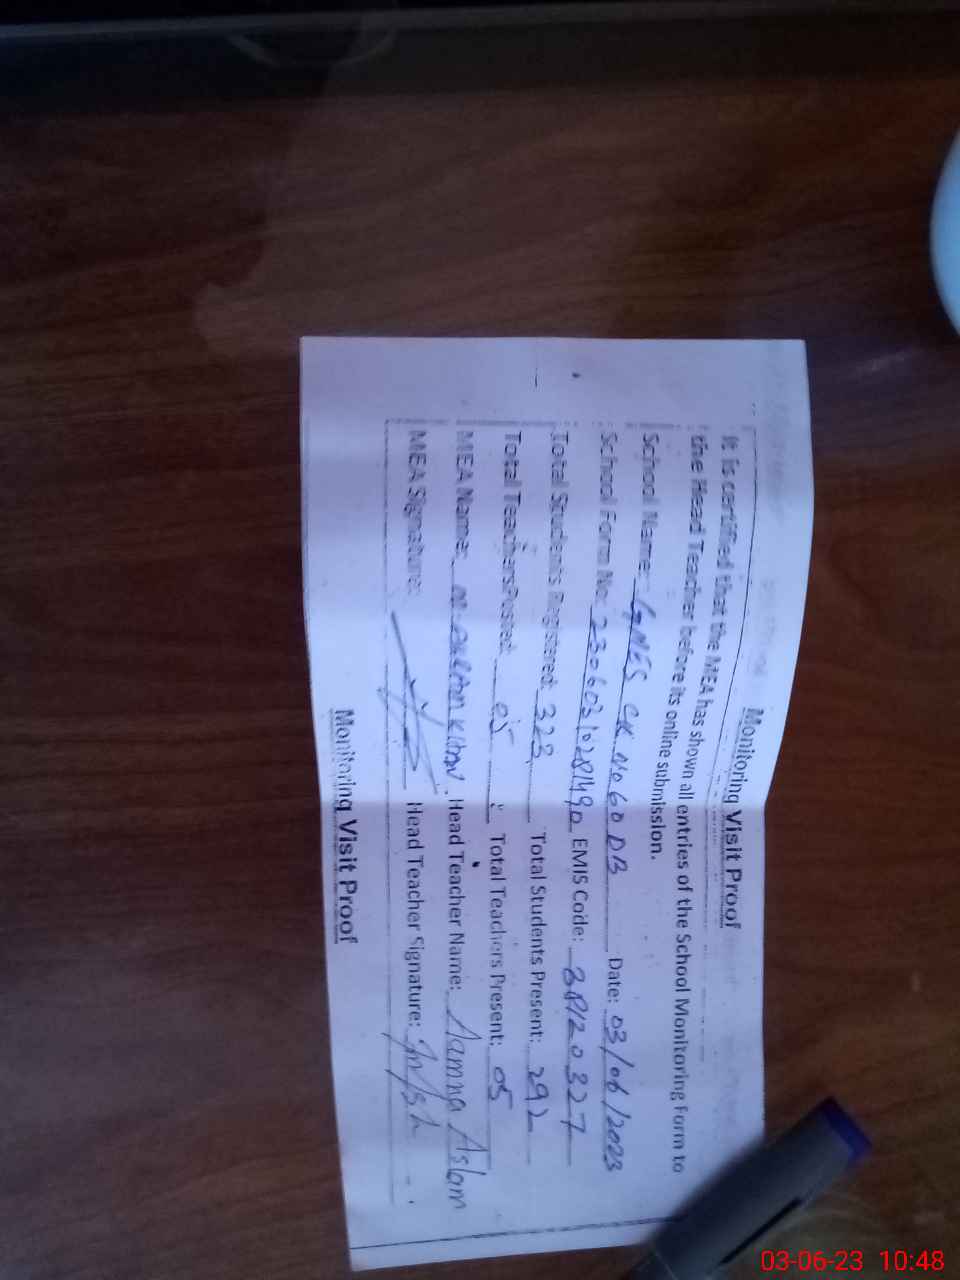 Monitoring Visit Proof
It is certified that the MEA has shown all entries of the School Monitoring Form to
the Head Teacher before its online submission.
School Name: GMES CK No 60 DB Date: 03/06/2023
School Form No: EMIS Code:
Total Students Registered: 323 Total Students Present: 292
Total Teachers Posted: 05 Total Teachers Present: 05
MEA Name: Khan Head Teacher Name: Aamna Aslam
MEA Signature: Head Teacher Signature:
Monitoring Visit Proof
03-06-23 10:48